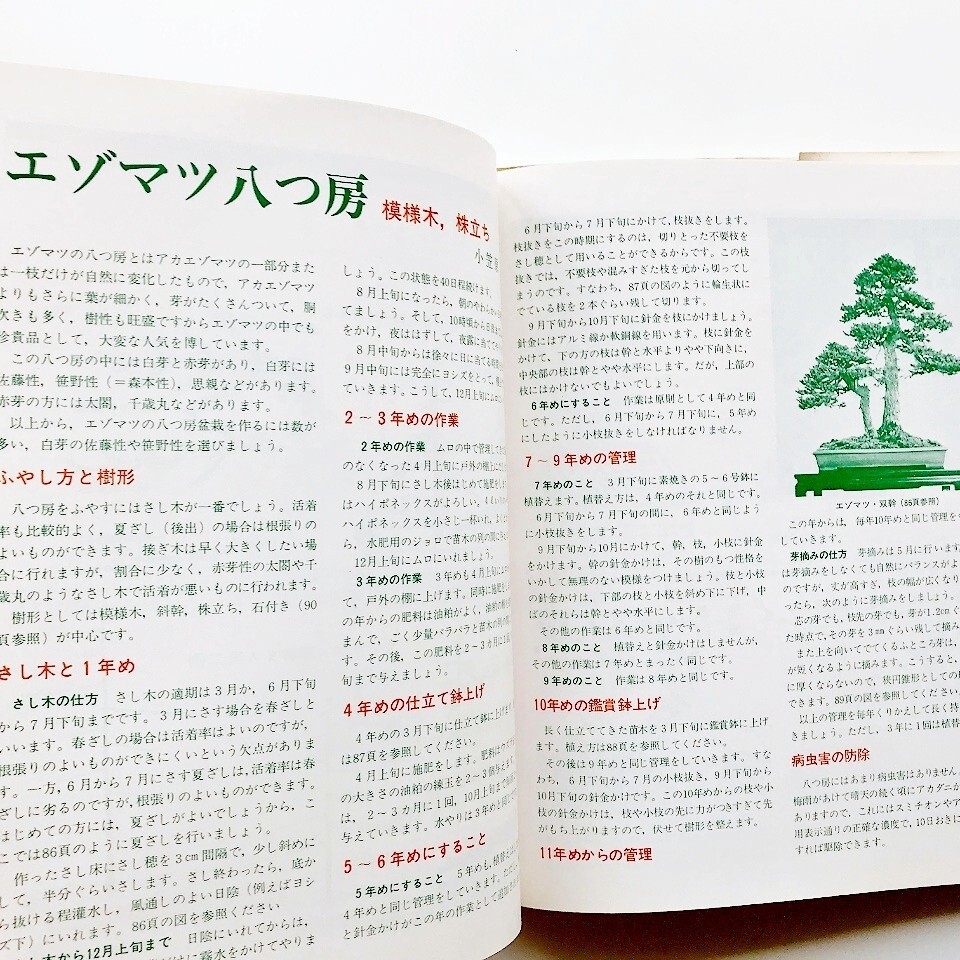 エゾマツ八つ房
模様木，株立ち
小笠
エゾマツの八つ房とはアカエゾマツの一部分また
は一枝だけが自然に変化したもので，アカエゾマツ
よりもさらに葉が細かく，芽がたくさんついて，胴
吹きも多く，樹性も旺盛ですからエゾマツの中でも
珍貴品として，大変な人気を博しています。
この八つ房の中には白芽と赤芽があり，白芽には
佐藤性，笹野性（＝森本性），思親などがあります。
赤芽の方には太閤，千歳丸などがあります。
以上から，エゾマツの八つ房盆栽を作るには数が
多い，白芽の佐藤性や笹野性を選びましょう。
ふやし方と樹形
八つ房をふやすにはさし木が一番でしょう。活着
率も比較的よく，夏ざし（後出）の場合は根張りの
よいものができます。接ぎ木は早く大きくしたい場
合に行れますが，割合に少なく，赤芽性の太閤や千
歳丸のようなさし木で活着が悪いものに行われます。
樹形としては模様木，斜幹，株立ち，石付き（90
頁参照）が中心です。
さし木と１年め
さし木の仕方　さし木の適期は３月か，６月下旬
から７月下旬までです。３月にさす場合を春ざしと
いいます。春ざしの場合は活着率はよいのですが，
根張りのよいものができにくいという欠点がありま
す。一方，６月から７月にさす夏ざしは，活着率は春
ざしに劣るのですが，根張りのよいものができます。
はじめての方には，夏ざしがよいでしょうから，こ
こでは86頁のように夏ざしを行いましょう。
作ったさし床にさし穂を３cm間隔で，少し斜めに
して，半分ぐらいさします。さし終わったら，底か
ら抜ける程灌水し，風通しのよい日陰（例えばヨシ
ズ下）にいれます。86頁の図を参照ください
木から12月上旬まで　日陰にいれてからは，
に霧水をかけてやりま
しょう。この状態を40日程続けます。
８月上旬になったら，朝のやわらかい
てましょう。そして，10時頃から日覆
をかけ，夜ははずして，夜露に当て
８月中旬からは徐々に日に当てる時
９月中旬には完全にヨシズをとって，
ていきます。こうして，12月上旬に
２～３年めの作業
２年めの作業　ムロの中で管理して
のなくなった４月上旬に戸外の棚に
８月下旬にさし木後はじめて施肥をし
はハイポネックスがよろしい。
ハイポネックスを小さじ一杯いれ，よく
ら，水肥用のジョロで苗木の列の間に
12月上旬にムロにいれましょう。
３年めの作業　３年めも４月上旬に
て，戸外の棚に上げます。同時に施肥
の年からの肥料は油粕がよく，油粕の
まんで，ごく少量パラパラと苗木の列の
す。その後，この肥料を２～３か月に
旬まで与えましょう。
４年めの仕立て鉢上げ
４年めの３月下旬に仕立て鉢に上げま
す。87頁を参照してください。
４月上旬に施肥をします。肥料は
の大きさの油粕の練玉を２～３個
は，２～３カ月に１回，10月上旬まで
与えていきます。水やりは３年め
５～６年めにすること
５年めにすること　５年めも，植替えは
４年めと同じ管理をしていきます。
と針金かけがこの年の作業として
６月下旬から７月下旬にかけて，枝抜きをします。
枝抜きをこの時期にするのは，切りとった不要枝を
さし穂として用いることができるからです。この枝
抜きでは，不要枝や混みすぎた枝を元から切ってし
まうのです。すなわち，87頁の図のように輪生状に
でている枝を２本ぐらい残して切ります。
９月下旬から10月下旬に針金を枝にかけましょう。
針金にはアルミ線か軟銅線を用います。枝に針金を
かけて，下の方の枝は幹と水平よりやや下向きに，
中央部の枝は幹とやや水平にします。だが，上部の
枝にはかけないでもよいでしょう。
６年めにすること　作業は原則として４年めと同
じです。ただし，６月下旬から７月下旬に，５年め
にしたように小枝抜きをしなければなりません。
７～９年めの管理
７年めのこと　３月下旬に素焼きの５～６号鉢に
植替えます。植替え方は，４年めのそれと同じです。
６月下旬から７月下旬の間に，６年めと同じよう
に小枝抜きします。
９月下旬から10月にかけて，幹，枝，小枝に針金を
かけます。幹の針金かけは，その樹のもつ性格を
いかして無理のない模様をつけましょう。枝と小枝
の針金かけは，下部の枝と小枝を斜め下に下げ，中
ばのそれらは幹とやや水平にします。
その他の作業は６年めと同じです。
８年めのこと　植替えと針金かけはしませんが，
その他の作業は７年めとまったく同じです。
９年めのこと　作業は８年めと同じです。
10年めの鑑賞鉢上げ
長く仕立ててきた苗木を３月下旬に鑑賞鉢に上げ
ます。植え方は88頁を参照してください。
その後は９年めと同じ管理をしていきます。すな
わち，６月下旬から７月の小枝抜き，９月下旬から
10月下旬の針金かけです。この10年めからの枝や小
枝の針金かけは，枝や小枝の先に力がつきすぎて先
がもち上がりますので，伏せて樹形を整えます。
11年めからの管理
エゾマツ・双幹（85頁参照）
この年からは，毎年10年めと同じ管理を
していきます。
芽摘みの仕方　芽摘みは５月に行います
は芽摘みをしなくても自然にバランスが
のですが，丈が高すぎ，枝の幅が広くな
ったら，次のように芽摘みをしましょう。
芯の芽でも，枝先の芽でも，芽が1.2cm
た時点で，その芽を３mmぐらい残して摘み
また上を向いてでてくるふところ芽は，
が短くなるように摘みます。こうすると，
に厚くならないので，狭円錐形としての
できます。89頁の図を参照してください。
以上の管理を毎年くりかえして長く持
ましょう。ただし，３年に１回は植替
病虫害の防除
八つ房にはあまり病虫害はありません
梅雨があけて晴天の続く頃にアカダニが
ありますので，これにはスミチオンやア
用表示通りの正確な濃度で，10日おきに
すれば駆除できます。